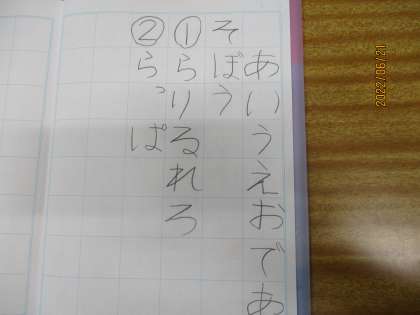 あいうえおであ
そぼう
①らりるれろ
②らっぱ
2022/06/21